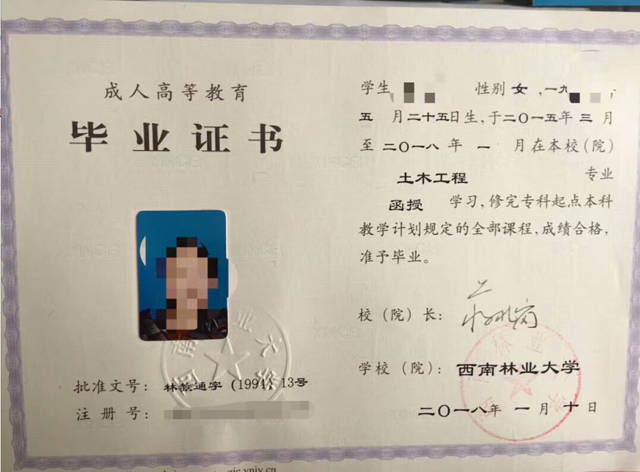 成人高等教育
毕业证书
批准文号：林教通字(1994)13号
注册号：
学生 性别 女，一九
五月二十五日生，于二〇一五年三月
至二〇一八年一月在本校(院)
土木工程 专业
函授 学习，修完专科起点本科
教学计划规定的全部课程，成绩合格，
准予毕业。
校（院）长：
学校（院）：西南林业大学
二〇一八年一月十日